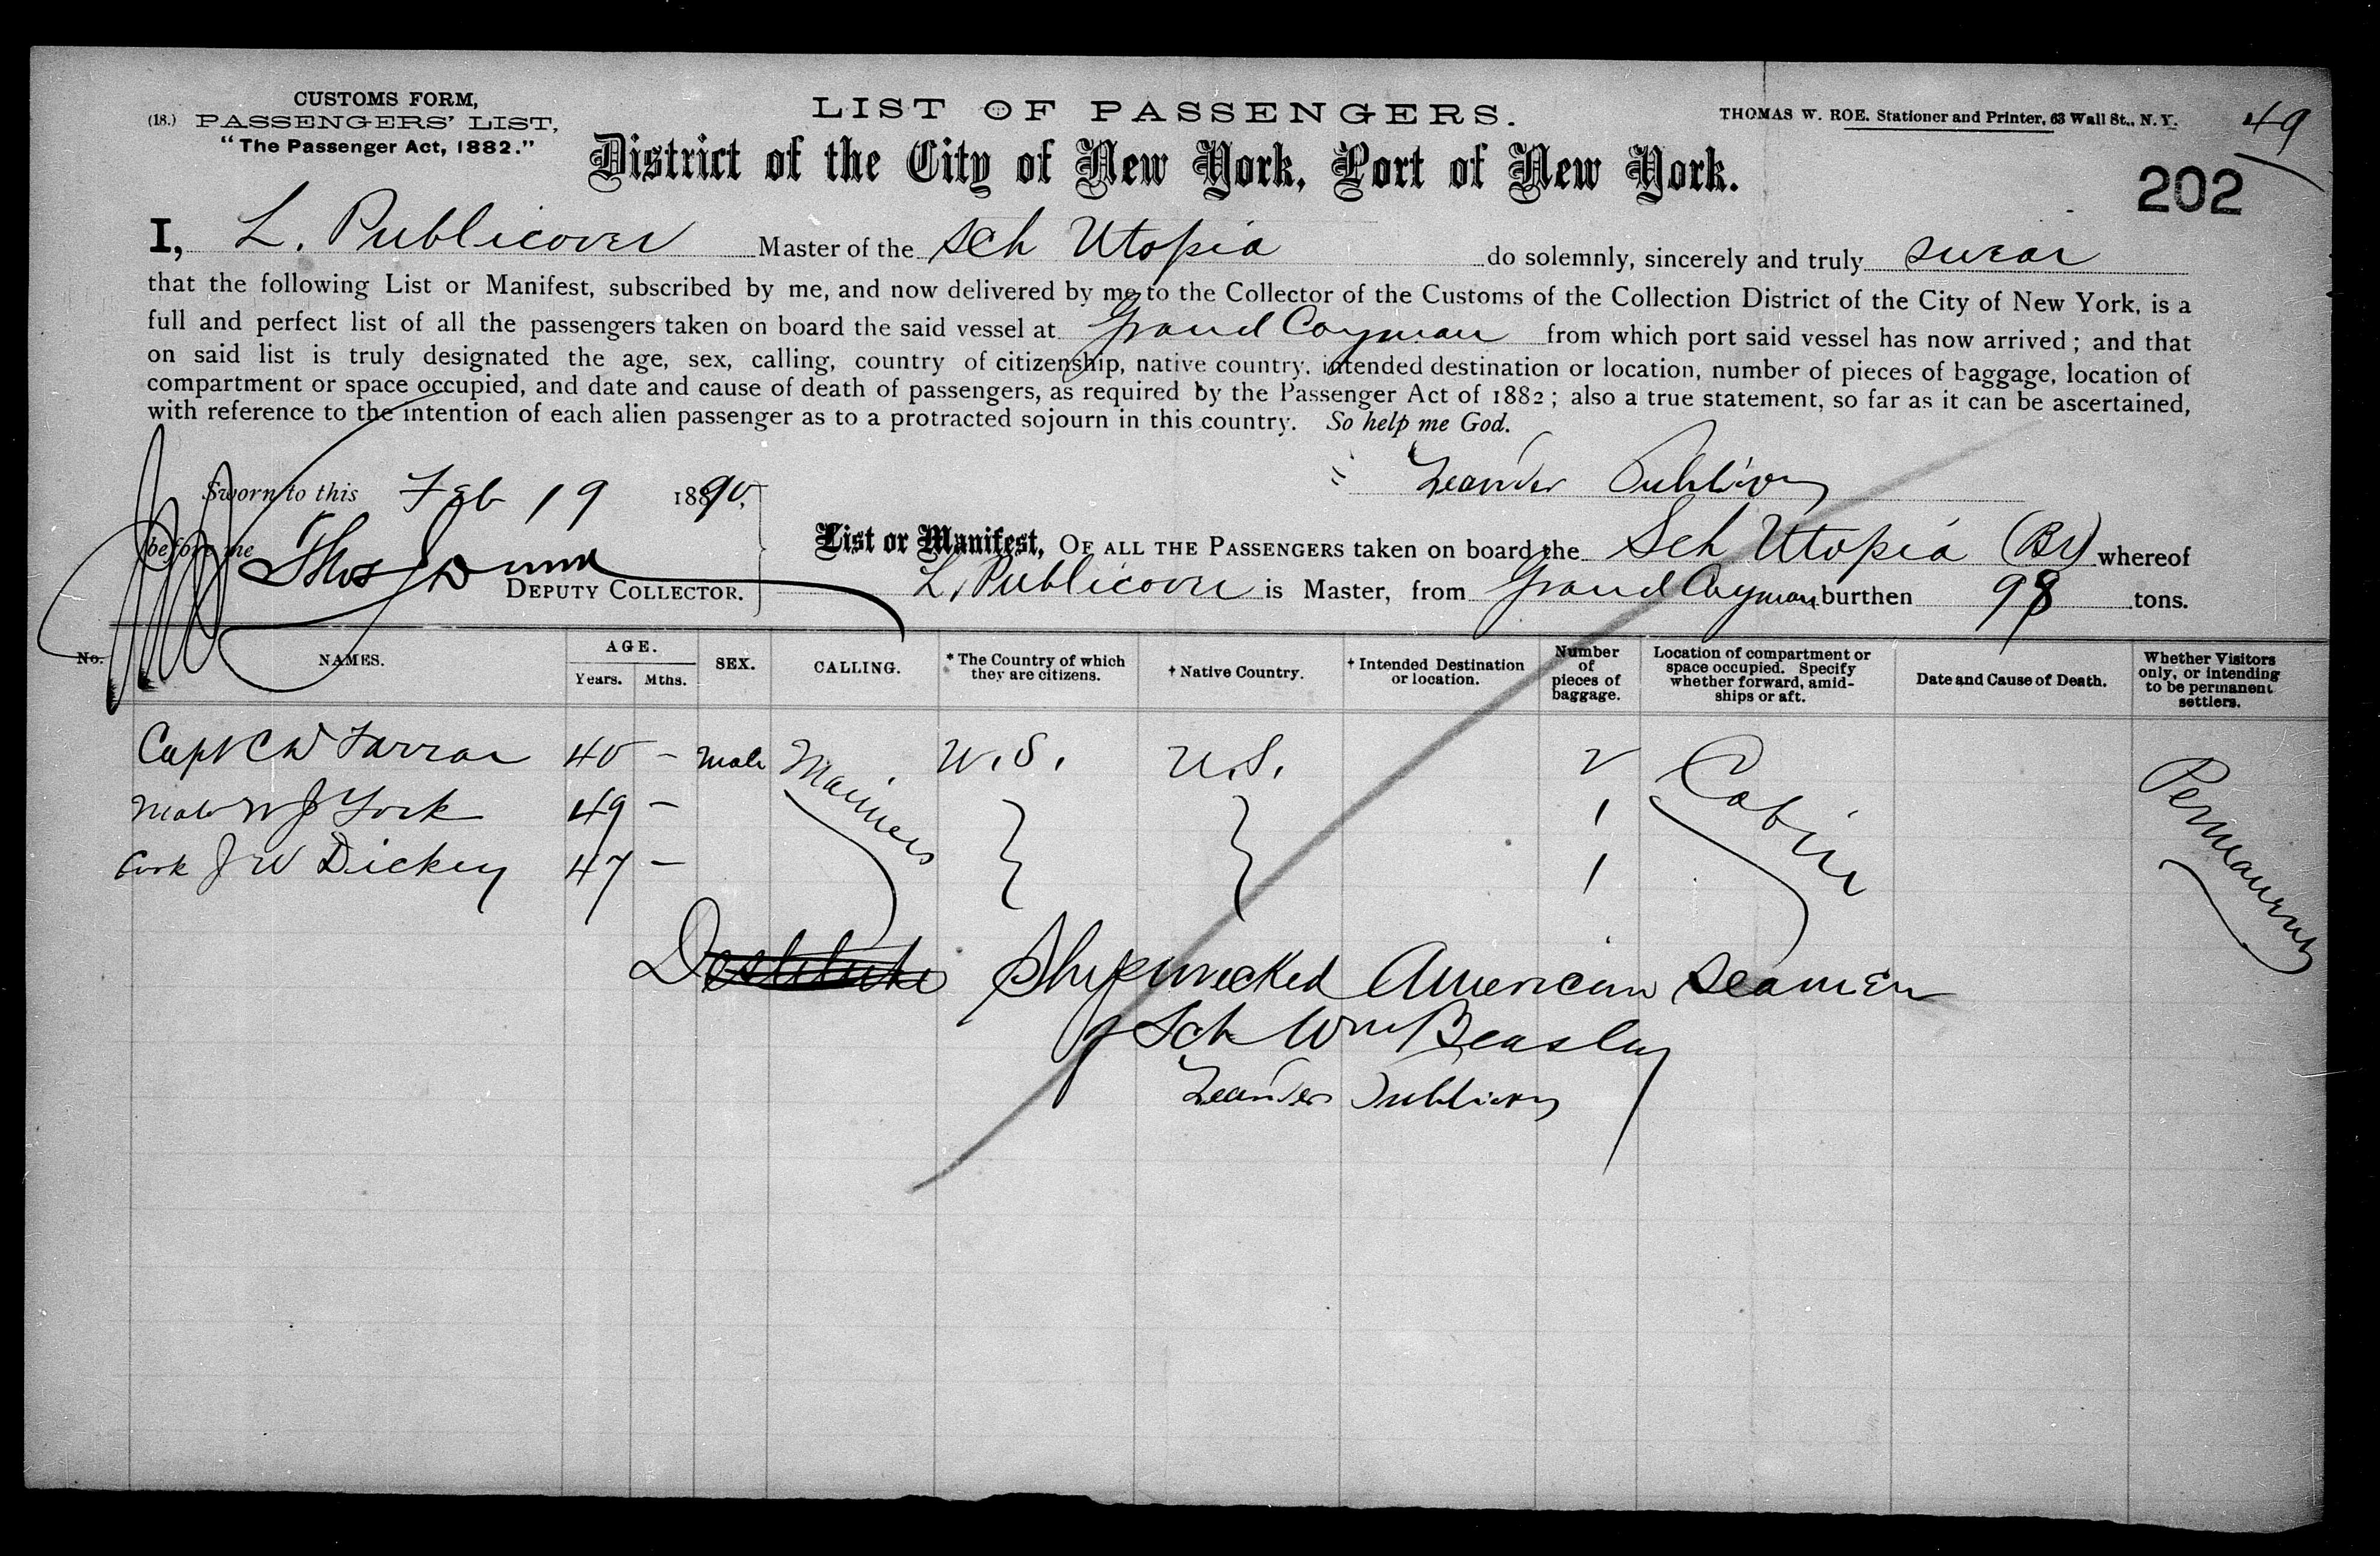 CUSTOMS FORM,
(18.) PASSENGERS' LIST,
"The Passenger Act, 1882."
LIST OF PASSENGERS.
THOMAS W. ROE. Stationer and Printer, 63 Wall St., N. Y.
49
202
District of the City of New York, Port of New York.
I, L. Publicover Master of the Sch Utopia do solemnly, sincerely and truly swear
that the following List or Manifest, subscribed by me, and now delivered by me to the Collector of the Customs of the Collection District of the City of New York, is a
full and perfect list of all the passengers taken on board the said vessel at Grand Cayman from which port said vessel has now arrived; and that
on said list is truly designated the age, sex, calling, country of citizenship, native country, intended destination or location, number of pieces of baggage, location of
compartment or space occupied, and date and cause of death of passengers, as required by the Passenger Act of 1882; also a true statement, so far as it can be ascertained,
with reference to the intention of each alien passenger as to a protracted sojourn in this country. So help me God.
Leander Publicover
Sworn to this Feb 19 1890,
before me Thos Dunn
DEPUTY COLLECTOR.
List or Manifest, OF ALL THE PASSENGERS taken on board the Sch Utopia (Br) whereof
L. Publicover is Master, from Grand Cayman burthen 98 tons.
No. NAMES. AGE. Years. Mths. SEX. CALLING. * The Country of which they are citizens. † Native Country. † Intended Destination or location. Number of pieces of baggage. Location of compartment or space occupied. Specify whether forward, amidships or aft. Date and Cause of Death. Whether Visitors only, or intending to be permanent settlers.
Capt C W Farrar 40 - Male Mariners U.S. U.S. 2 Cabin Permanent
Mate W J York 49 - 1
Cook J W Dickey 47 - 1
Destitute Shipwrecked American Seamen
of Sch Wm Beasley
Leander Publicover